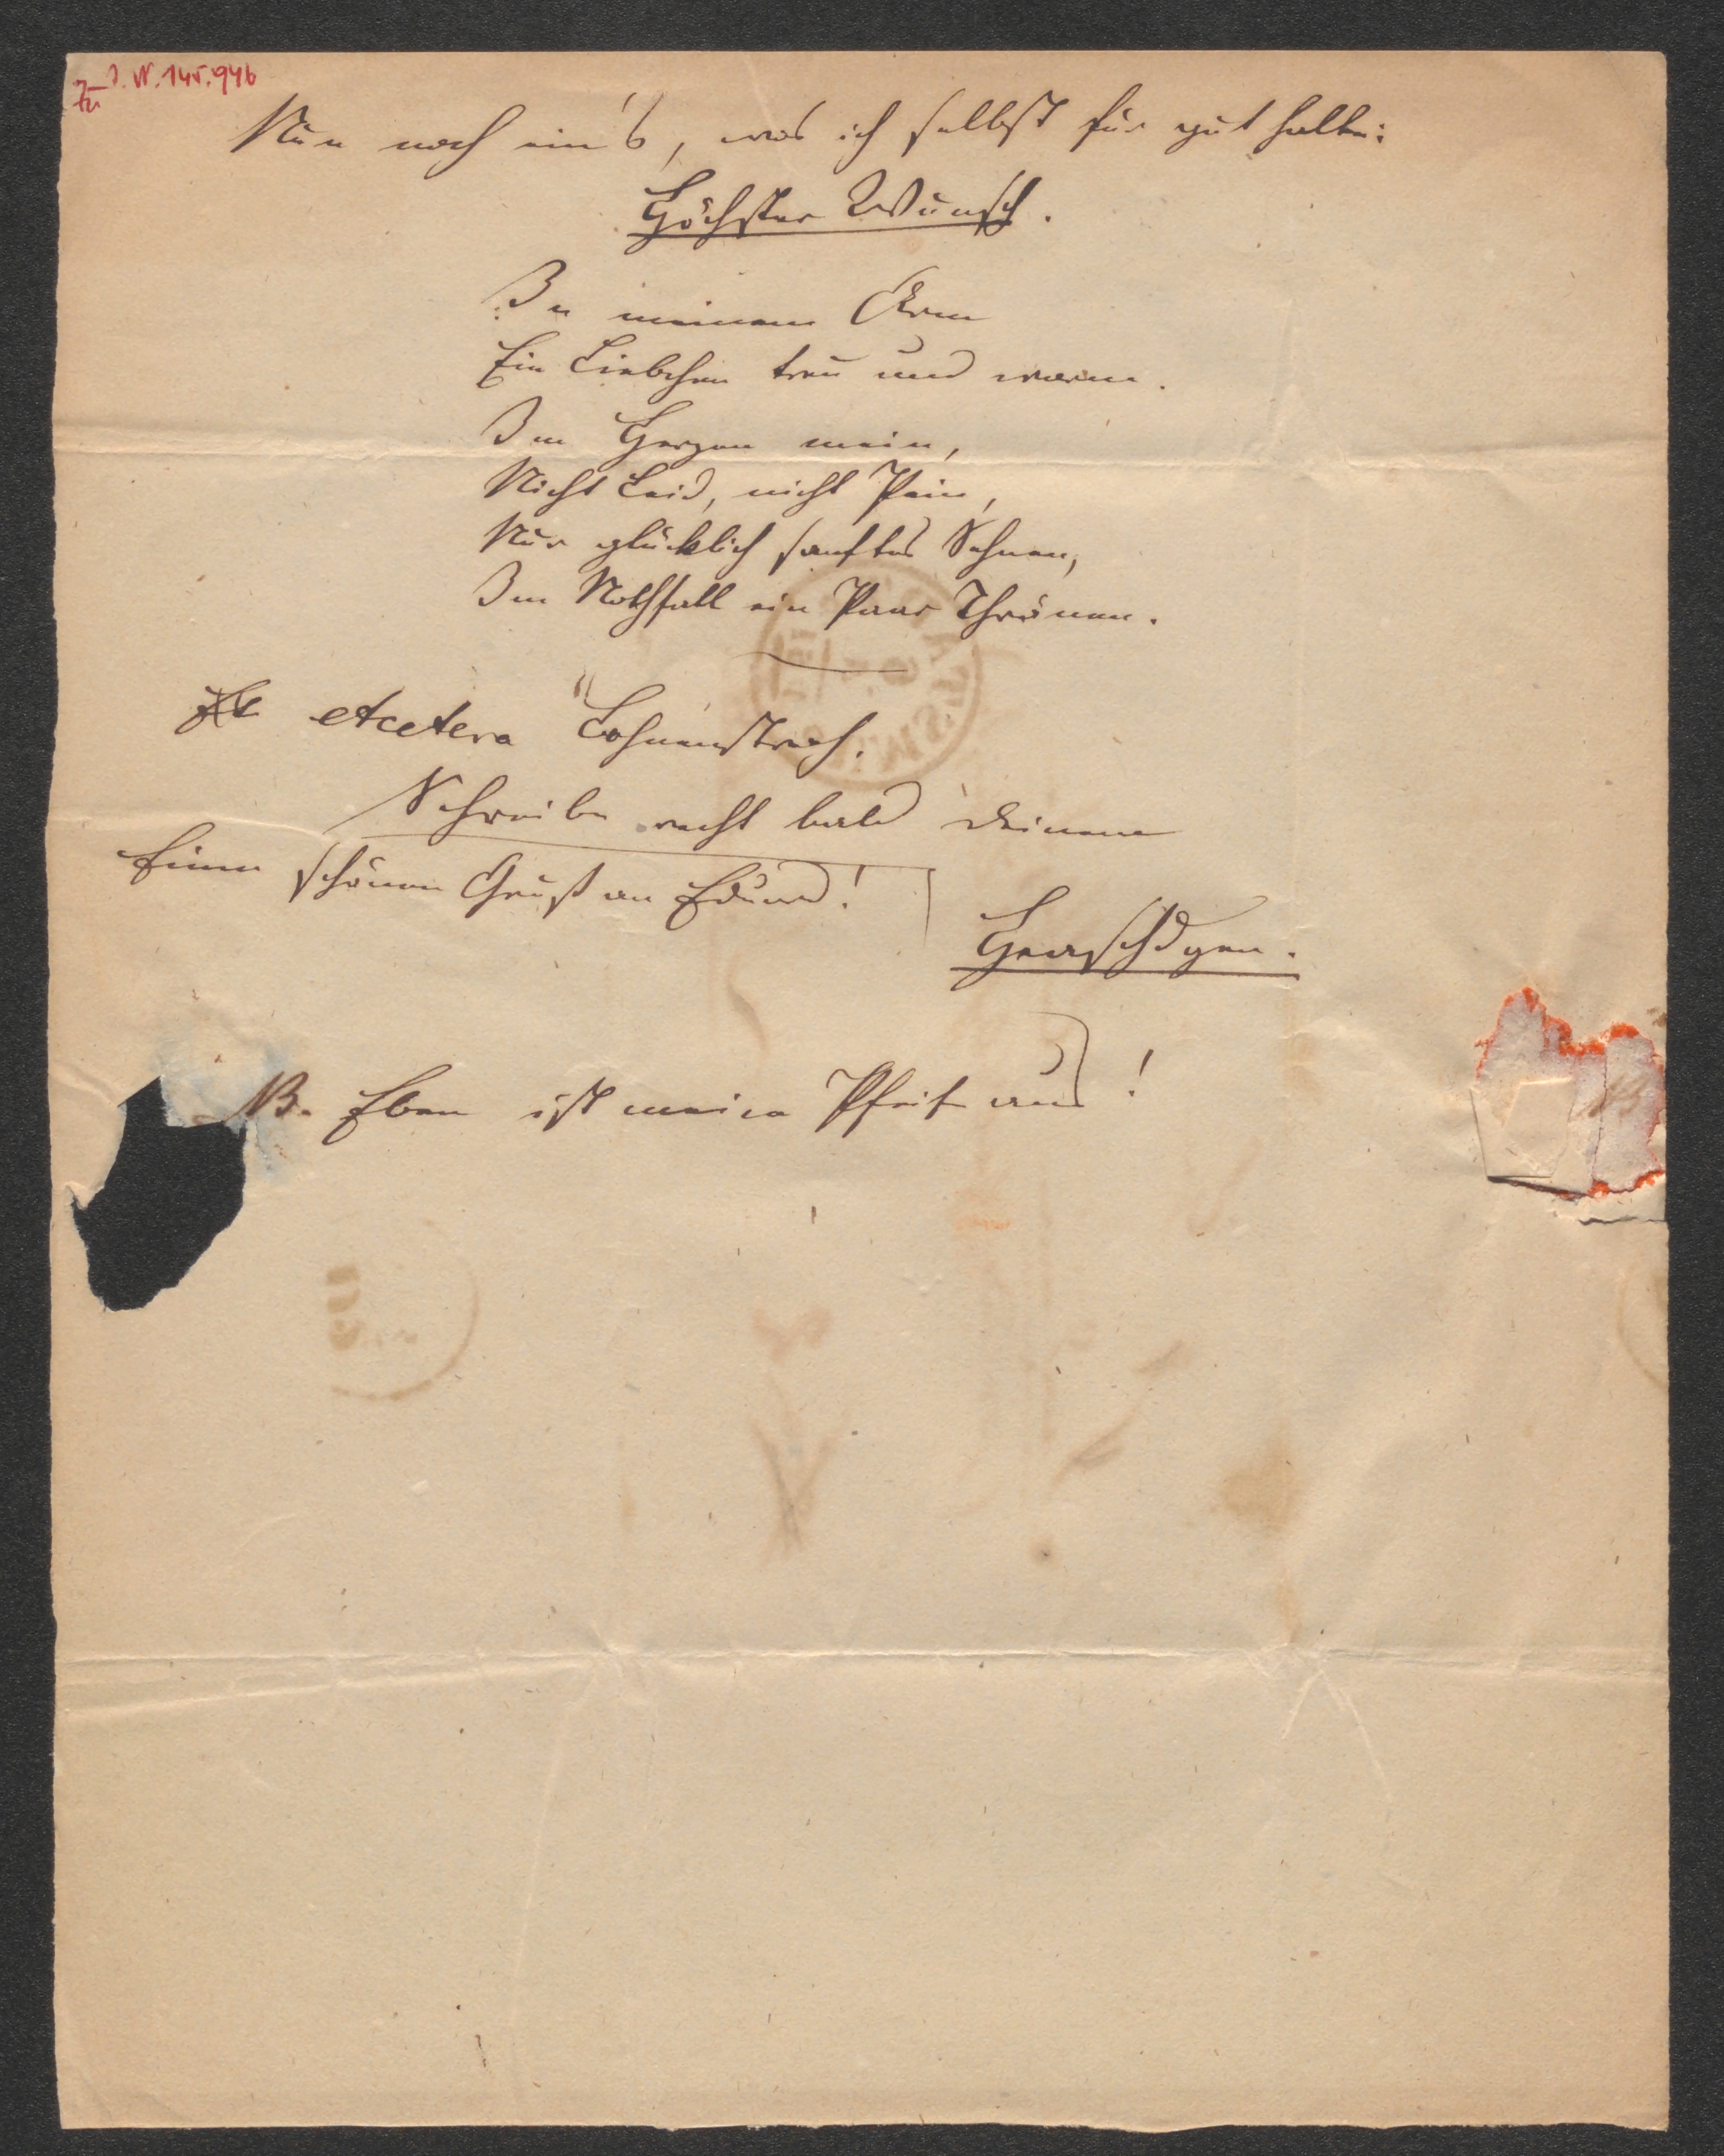 Zu I. N. 145.946
Nun noch ein's, was ich selbst für gut halte:
Höchster Wunsch.
In meinem Arm
Ein Liebchen treu und warm.
Im Herzen mein,
Nicht Leid, nicht Pein,
Nur glücklich sanftes Sehnen,
Im Nothfall ein Paar Thränen.
etcetera Bohnenstroh.
Schreibe recht bald Deinem
Einen schönen Gruß an Eduard!
NB. Eben ist meine Pfeife aus!